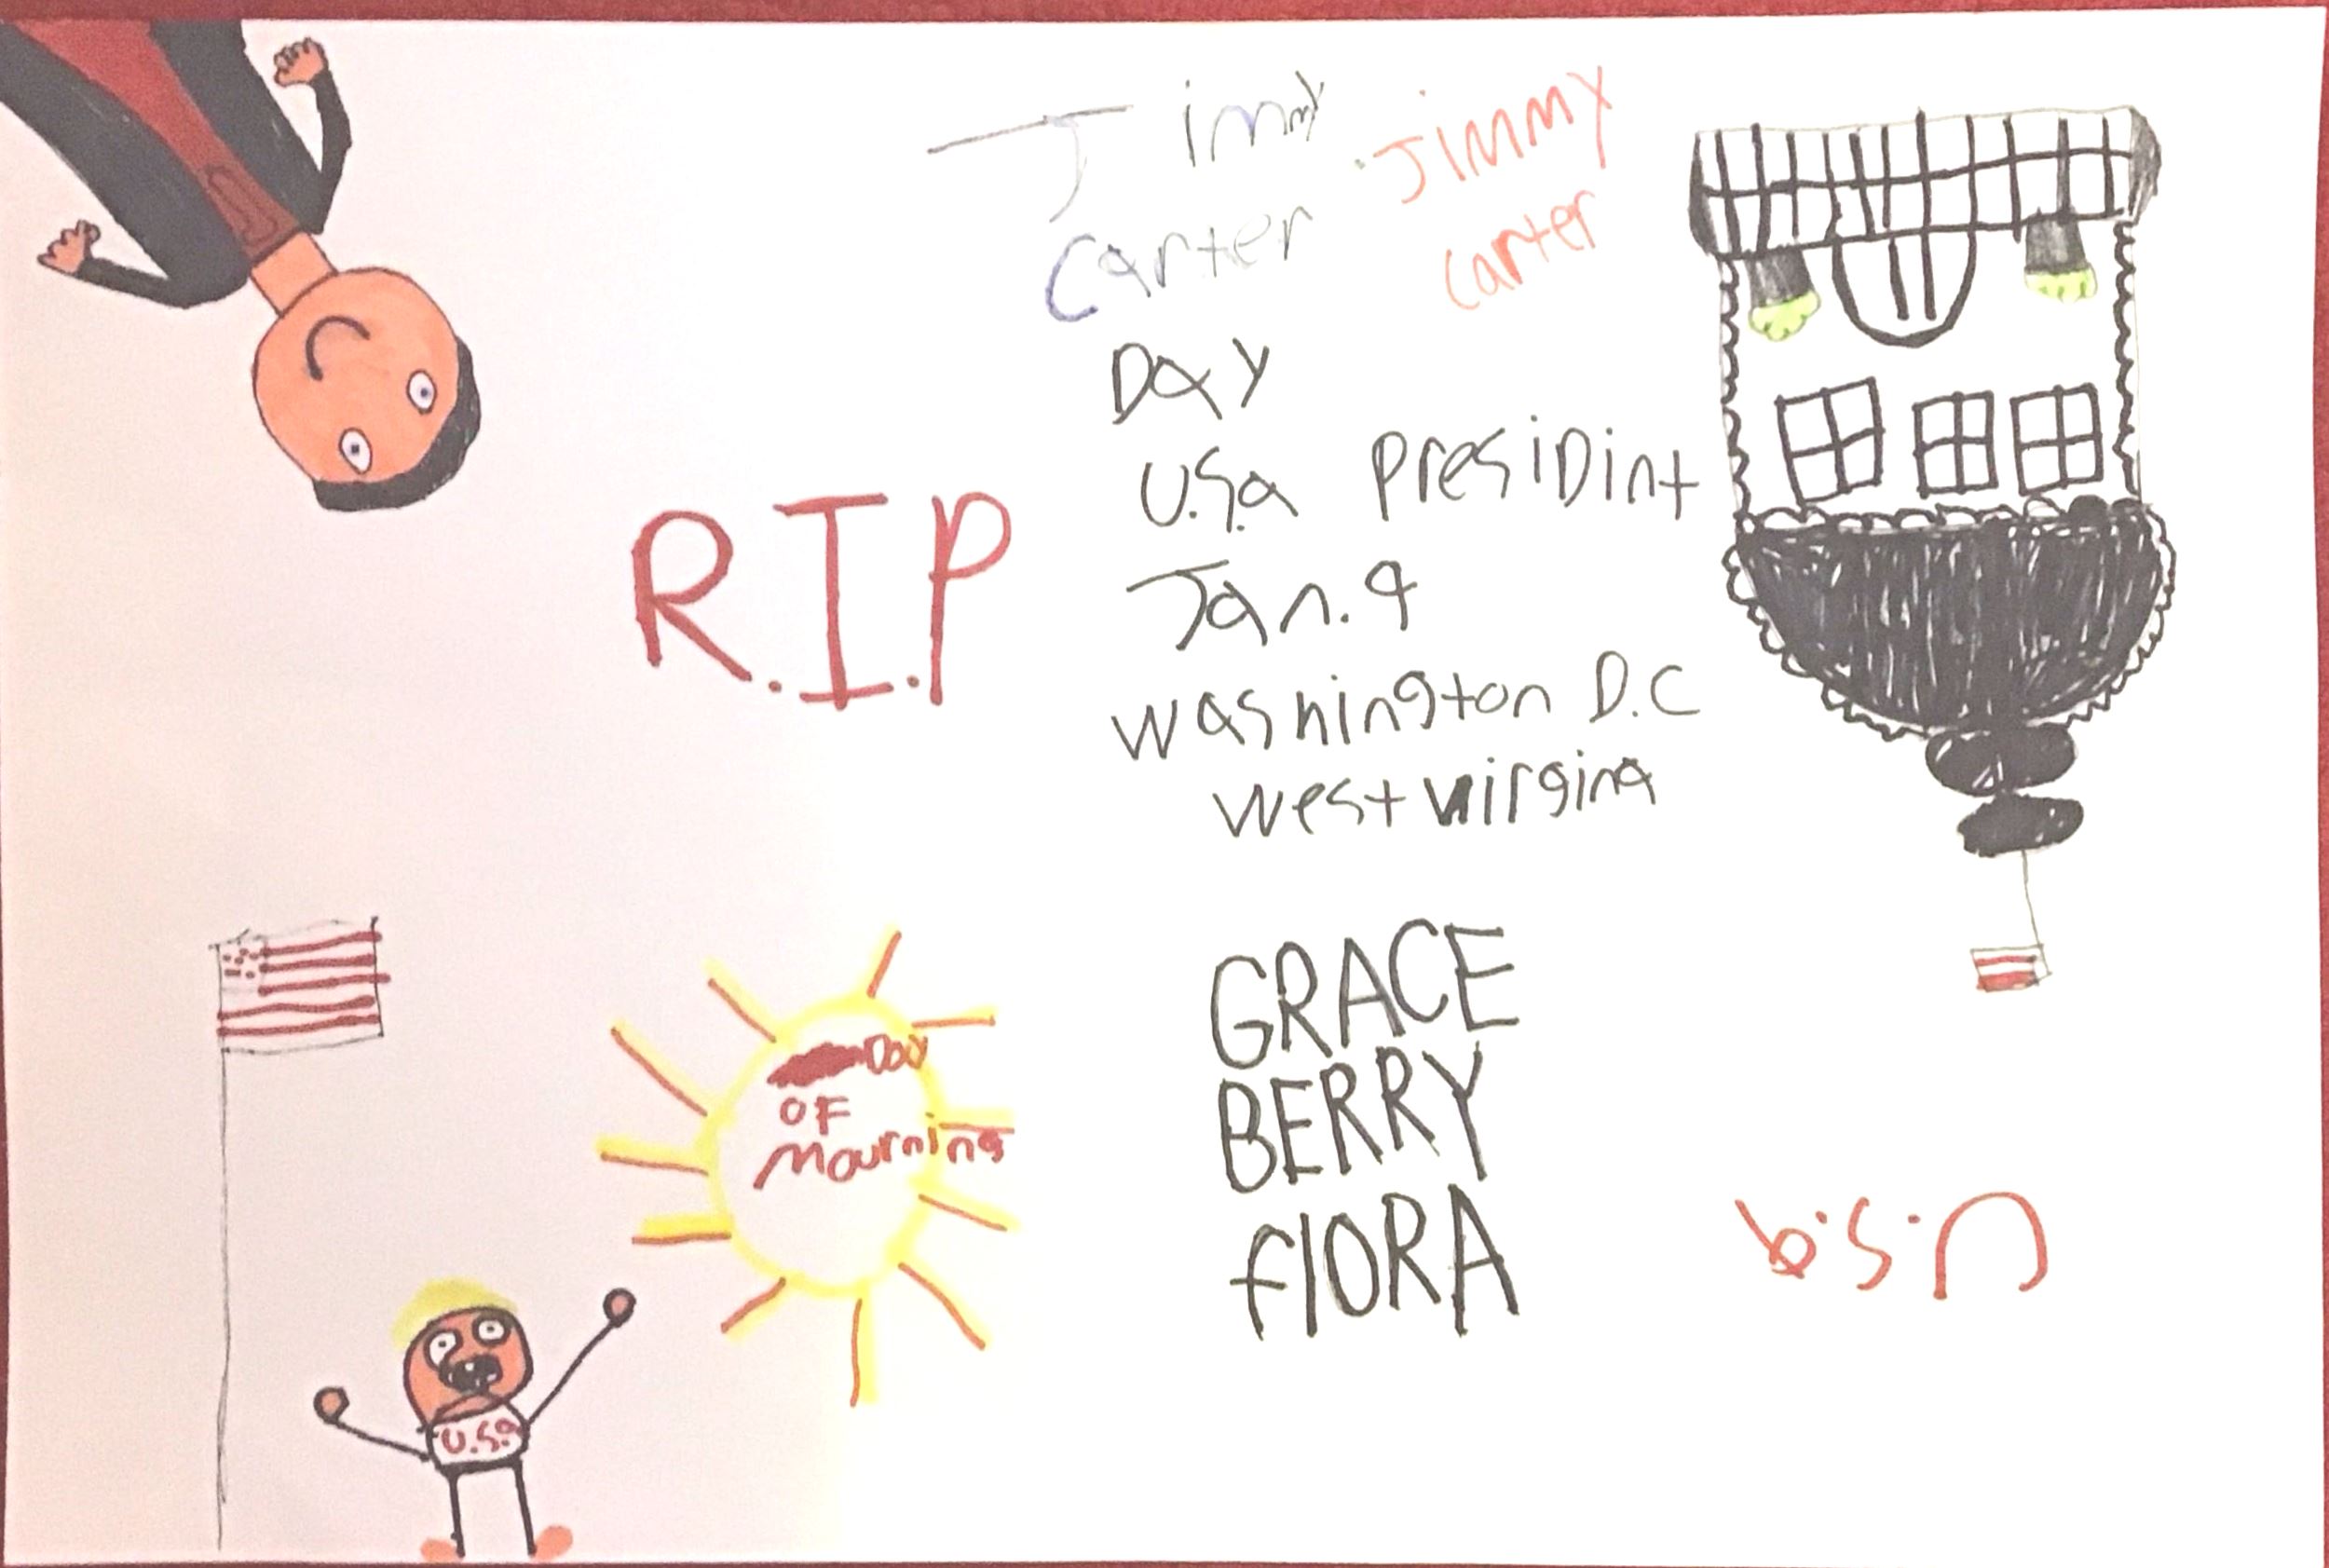 Jimmy
Carter
Jimmy
carter
Day
U.S.a presiDint
Jan. 9
washington D.C
west virgina
R.I.P
Day
OF
mourning
GRACE
BERRY
flORA
U.S.a
U.S.a